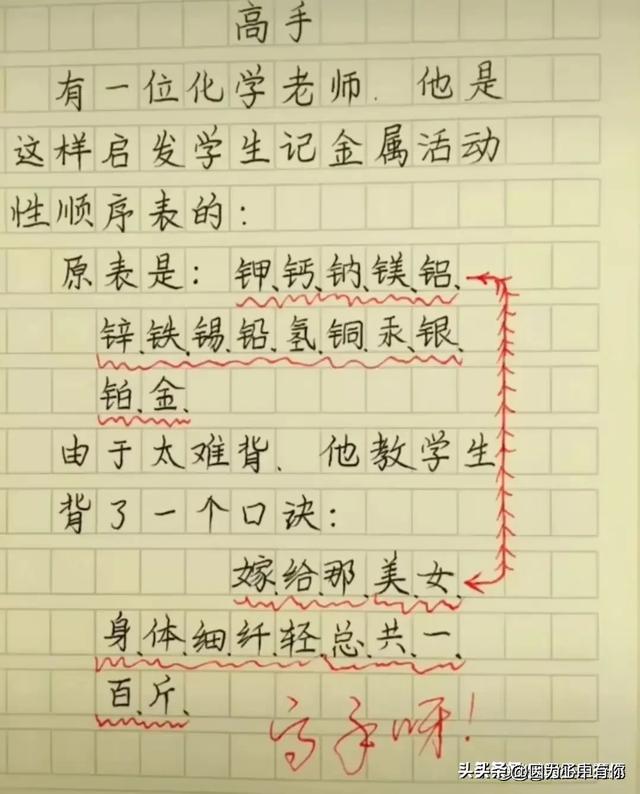 高手
有一位化学老师.他是
这样启发学生记金属活动
性顺序表的:
原表是:钾、钙、钠、镁、铝、
锌、铁、锡、铅、氢、铜、汞、银、
铂、金、
由于太难背、他教学生
背了一个口诀:
嫁、给、那、美、女、
身、体、细、纤、轻、总、共、一、
百、斤、
高手呀!
头条 @因为止申有你